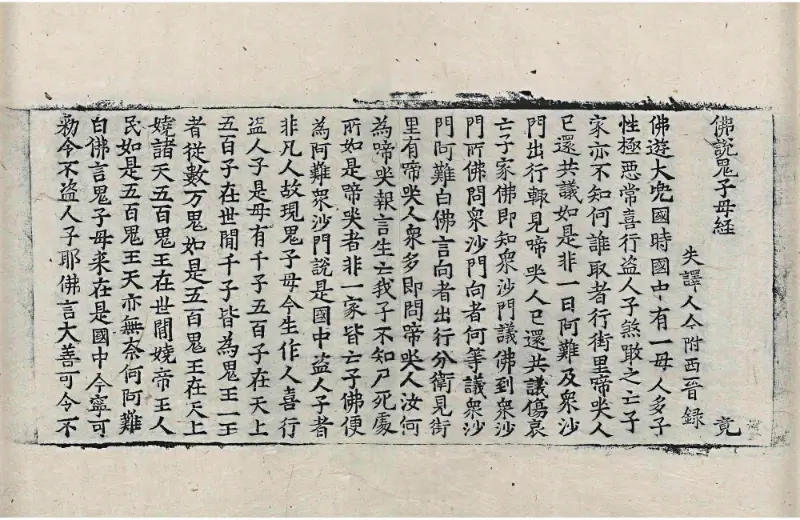 佛說鬼子母經 竟
失譯人今附西晉錄
佛遊大兜國時國中有一母人多子
性極惡常喜行盜人子煞敢之亡子
家亦不知何誰取者行街里啼哭人
已還共議如是非一日阿難及衆沙
門出行輒見啼哭人已還共議傷哀
亡子家佛即知衆沙門議佛到衆沙
門所佛問衆沙門向者何等議衆沙
門阿難白佛言向者出行分衛見街
里有啼哭人衆多即問啼哭人汝何
為啼哭報言生亡我子不知尸死處
所如是啼哭者非一家皆亡子佛便
為阿難衆沙門說是國中盜人子者
非凡人故現鬼子母今生作人喜行
盜人子是母有千子五百子在天上
五百子在世閒千子皆為鬼王一王
者從數万鬼如是五百鬼王在天上
嬈諸天五百鬼王在世閒嬈帝王人
民如是五百鬼王天亦無奈何阿難
白佛言鬼子母来在是國中今寧可
勑令不盜人子耶佛言大善可令不